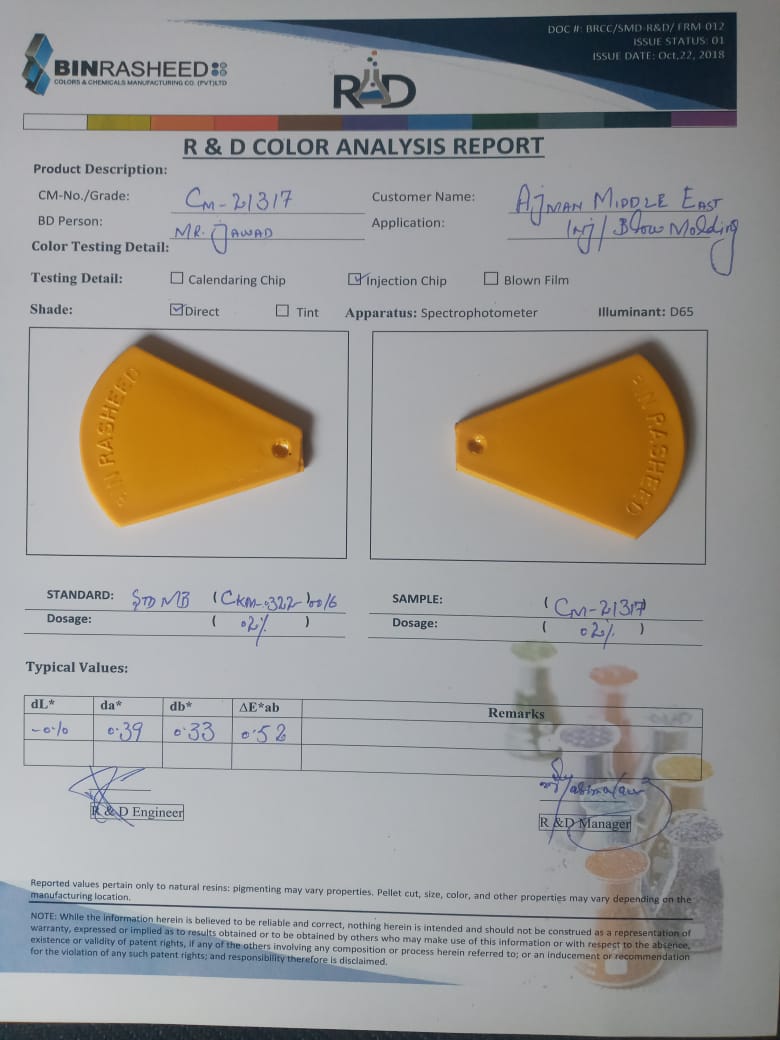 DOC #: BRCC/SMD-R&D/ FRM-012
ISSUE STATUS: 01
ISSUE DATE: Oct,22, 2018
BINRASHEED
COLORS & CHEMICALS MANUFACTURING CO. (PVT)LTD
R&D
R & D COLOR ANALYSIS REPORT
Product Description:
CM-No./Grade: CM-21317 Customer Name: AJMAN MIDDLE EAST
BD Person: MR. JAWAD Application: Inj/Blow Molding
Color Testing Detail:
Testing Detail: Calendaring Chip Injection Chip Blown Film
Shade: Direct Tint Apparatus: Spectrophotometer Illuminant: D65
BIN RASHEED
BIN RASHEED
STANDARD: STD MB (CKM-322-0016 SAMPLE: (CM-21317)
Dosage: ( 02% ) Dosage: ( 02% )
Typical Values:
dL* da* db* ΔE*ab Remarks
-0.10 0.39 0.33 0.52
R & D Engineer
R &D Manager
Reported values pertain only to natural resins: pigmenting may vary properties. Pellet cut, size, color, and other properties may vary depending on the
manufacturing location.
NOTE: While the information herein is believed to be reliable and correct, nothing herein is intended and should not be construed as a representation of
warranty, expressed or implied as to results obtained or to be obtained by others who may make use of this information or with respect to the absence,
existence or validity of patent rights, if any of the others involving any composition or process herein referred to; or an inducement or recommendation
for the violation of any such patent rights; and responsibility therefore is disclaimed.